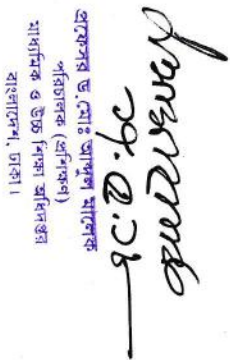 প্রফেসর ড. মোঃ আবদুল মালেক
পরিচালক (প্রশিক্ষণ)
মাধ্যমিক ও উচ্চ শিক্ষা অধিদপ্তর
বাংলাদেশ, ঢাকা।